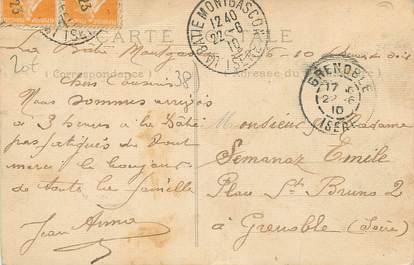 CARTE POSTALE
LA BATIE MONTGASCON
12 40
22-6
10
ISERE
La Bâtie Montgascon
(Correspondance)
Adresse du
GRENOBLE
17
22-6
10
ISERE
20f
38
Chers Cousins
Nous sommes arrivés
à 3 heures à la Bâtie
pas fatigués du tout
merci le bonjour
de toute la famille
Jean Anna
Monsieur Madame
Semanaz Emile
Place St Bruno 2
à Grenoble (Isère)